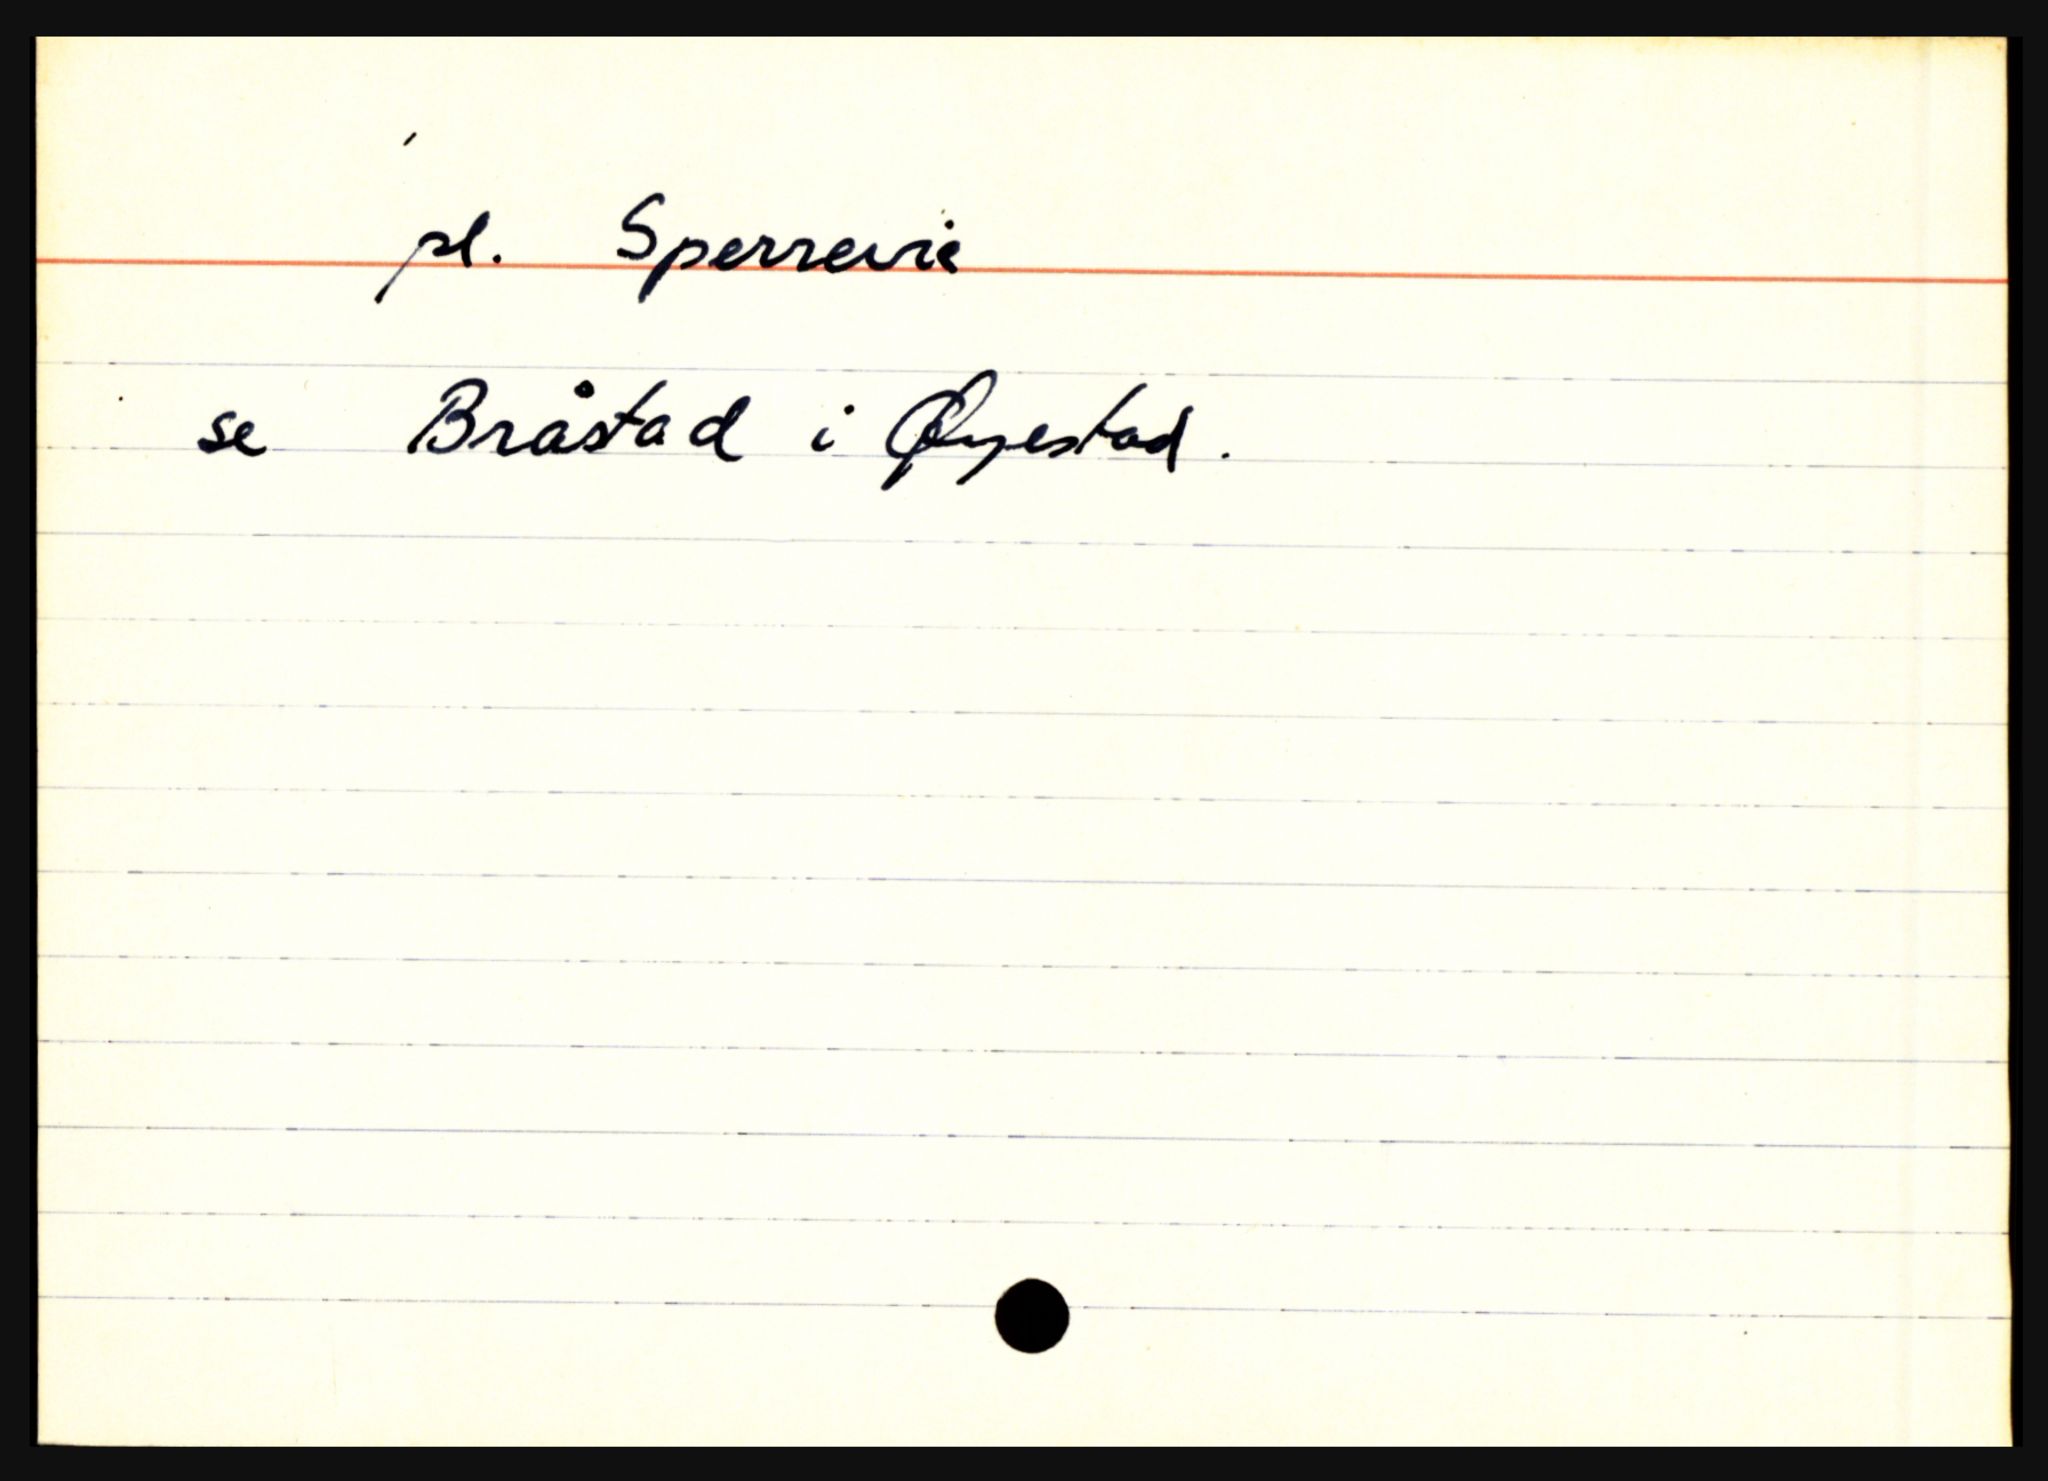 pl. Sperrevik
se Bråstad i Øyestad.